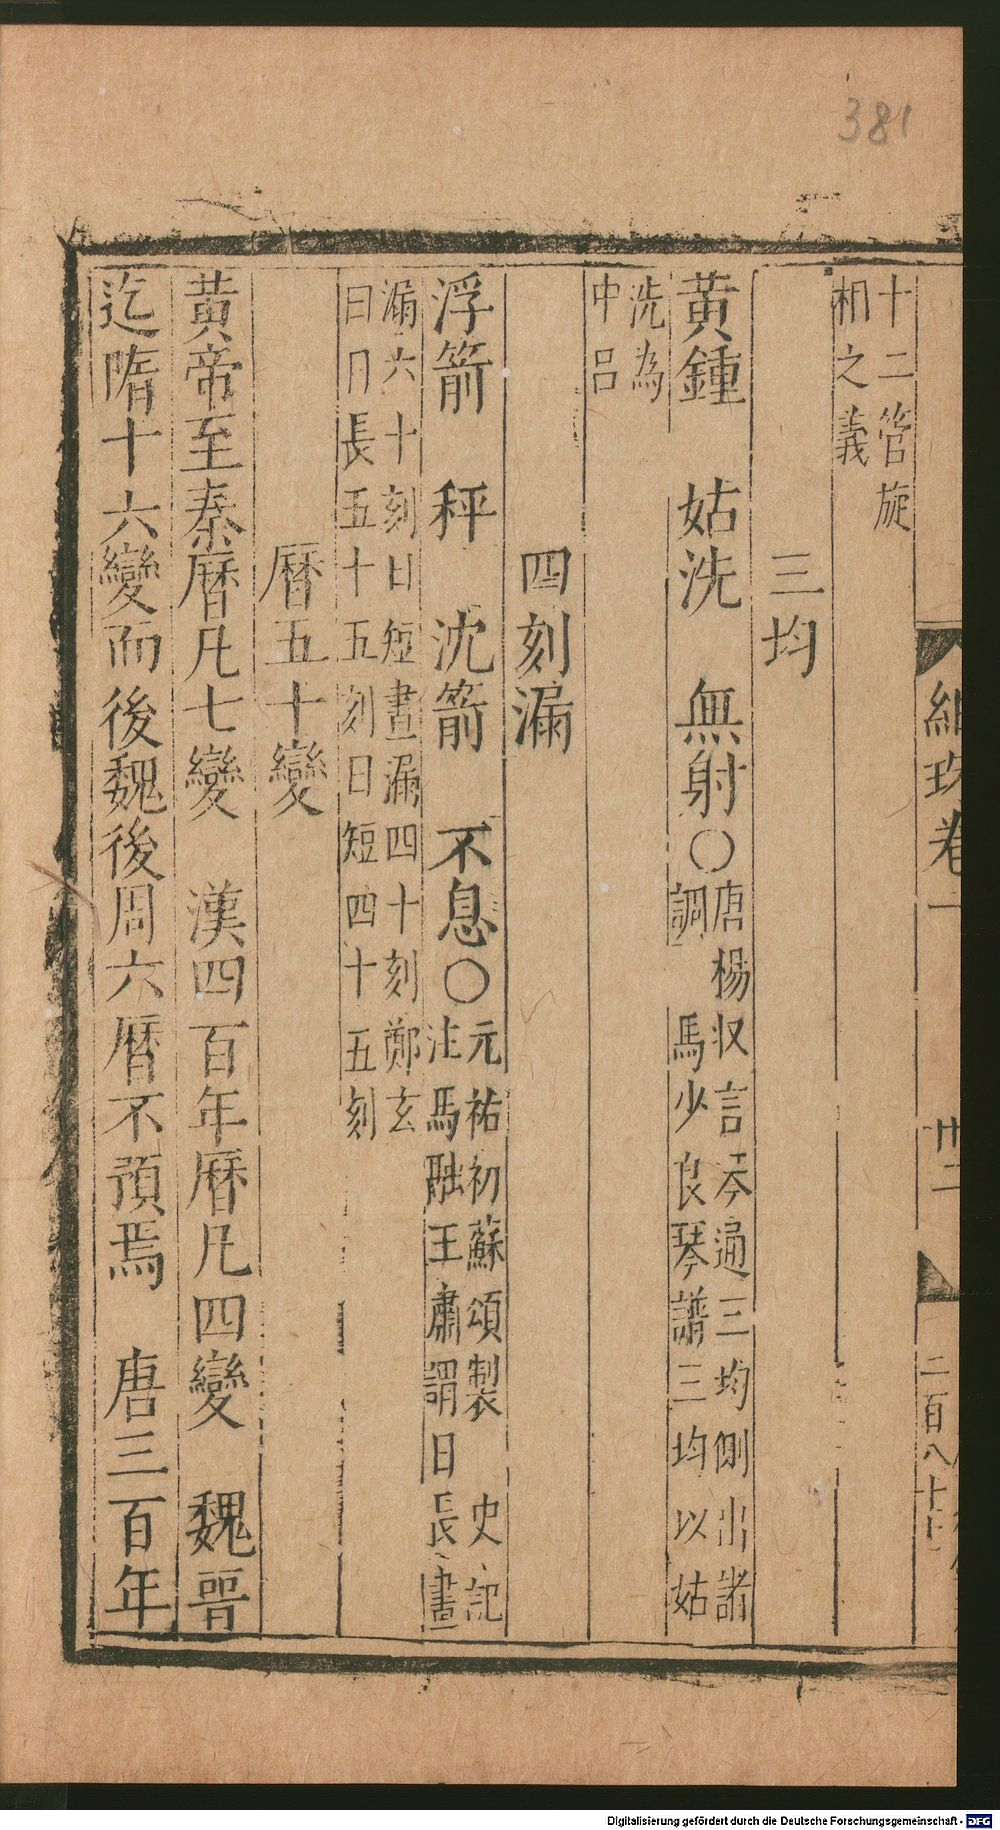 381
十二管旋
相之義
三均
黄鍾　姑洗　無射〇唐楊収言琴通三均側出諸
調　馬少良琴譜三均以姑
洗為
中呂
四刻漏
浮箭　秤　沈箭　不息〇元祐初蘇頌製　史記
注馬融王肅謂日長晝
漏六十刻日短晝漏四十刻鄭玄
曰日長五十五刻日短四十五刻
曆五十變
黃帝至秦曆凡七變　漢四百年曆凡四變　魏晋
迄隋十六變而後魏後周六曆不預焉　唐三百年
卷一
卅二
二百八十
Digitalisierung gefördert durch die Deutsche Forschungsgemeinschaft - DFG